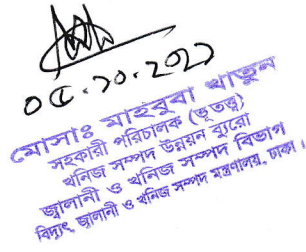 ০৫.১০.২০২১
মোসাঃ মাহবুবা খাতুন
সহকারী পরিচালক (ভূতত্ত্ব)
খনিজ সম্পদ উন্নয়ন ব্যুরো
জ্বালানী ও খনিজ সম্পদ বিভাগ
বিদ্যুৎ, জ্বালানী ও খনিজ সম্পদ মন্ত্রণালয়, ঢাকা।